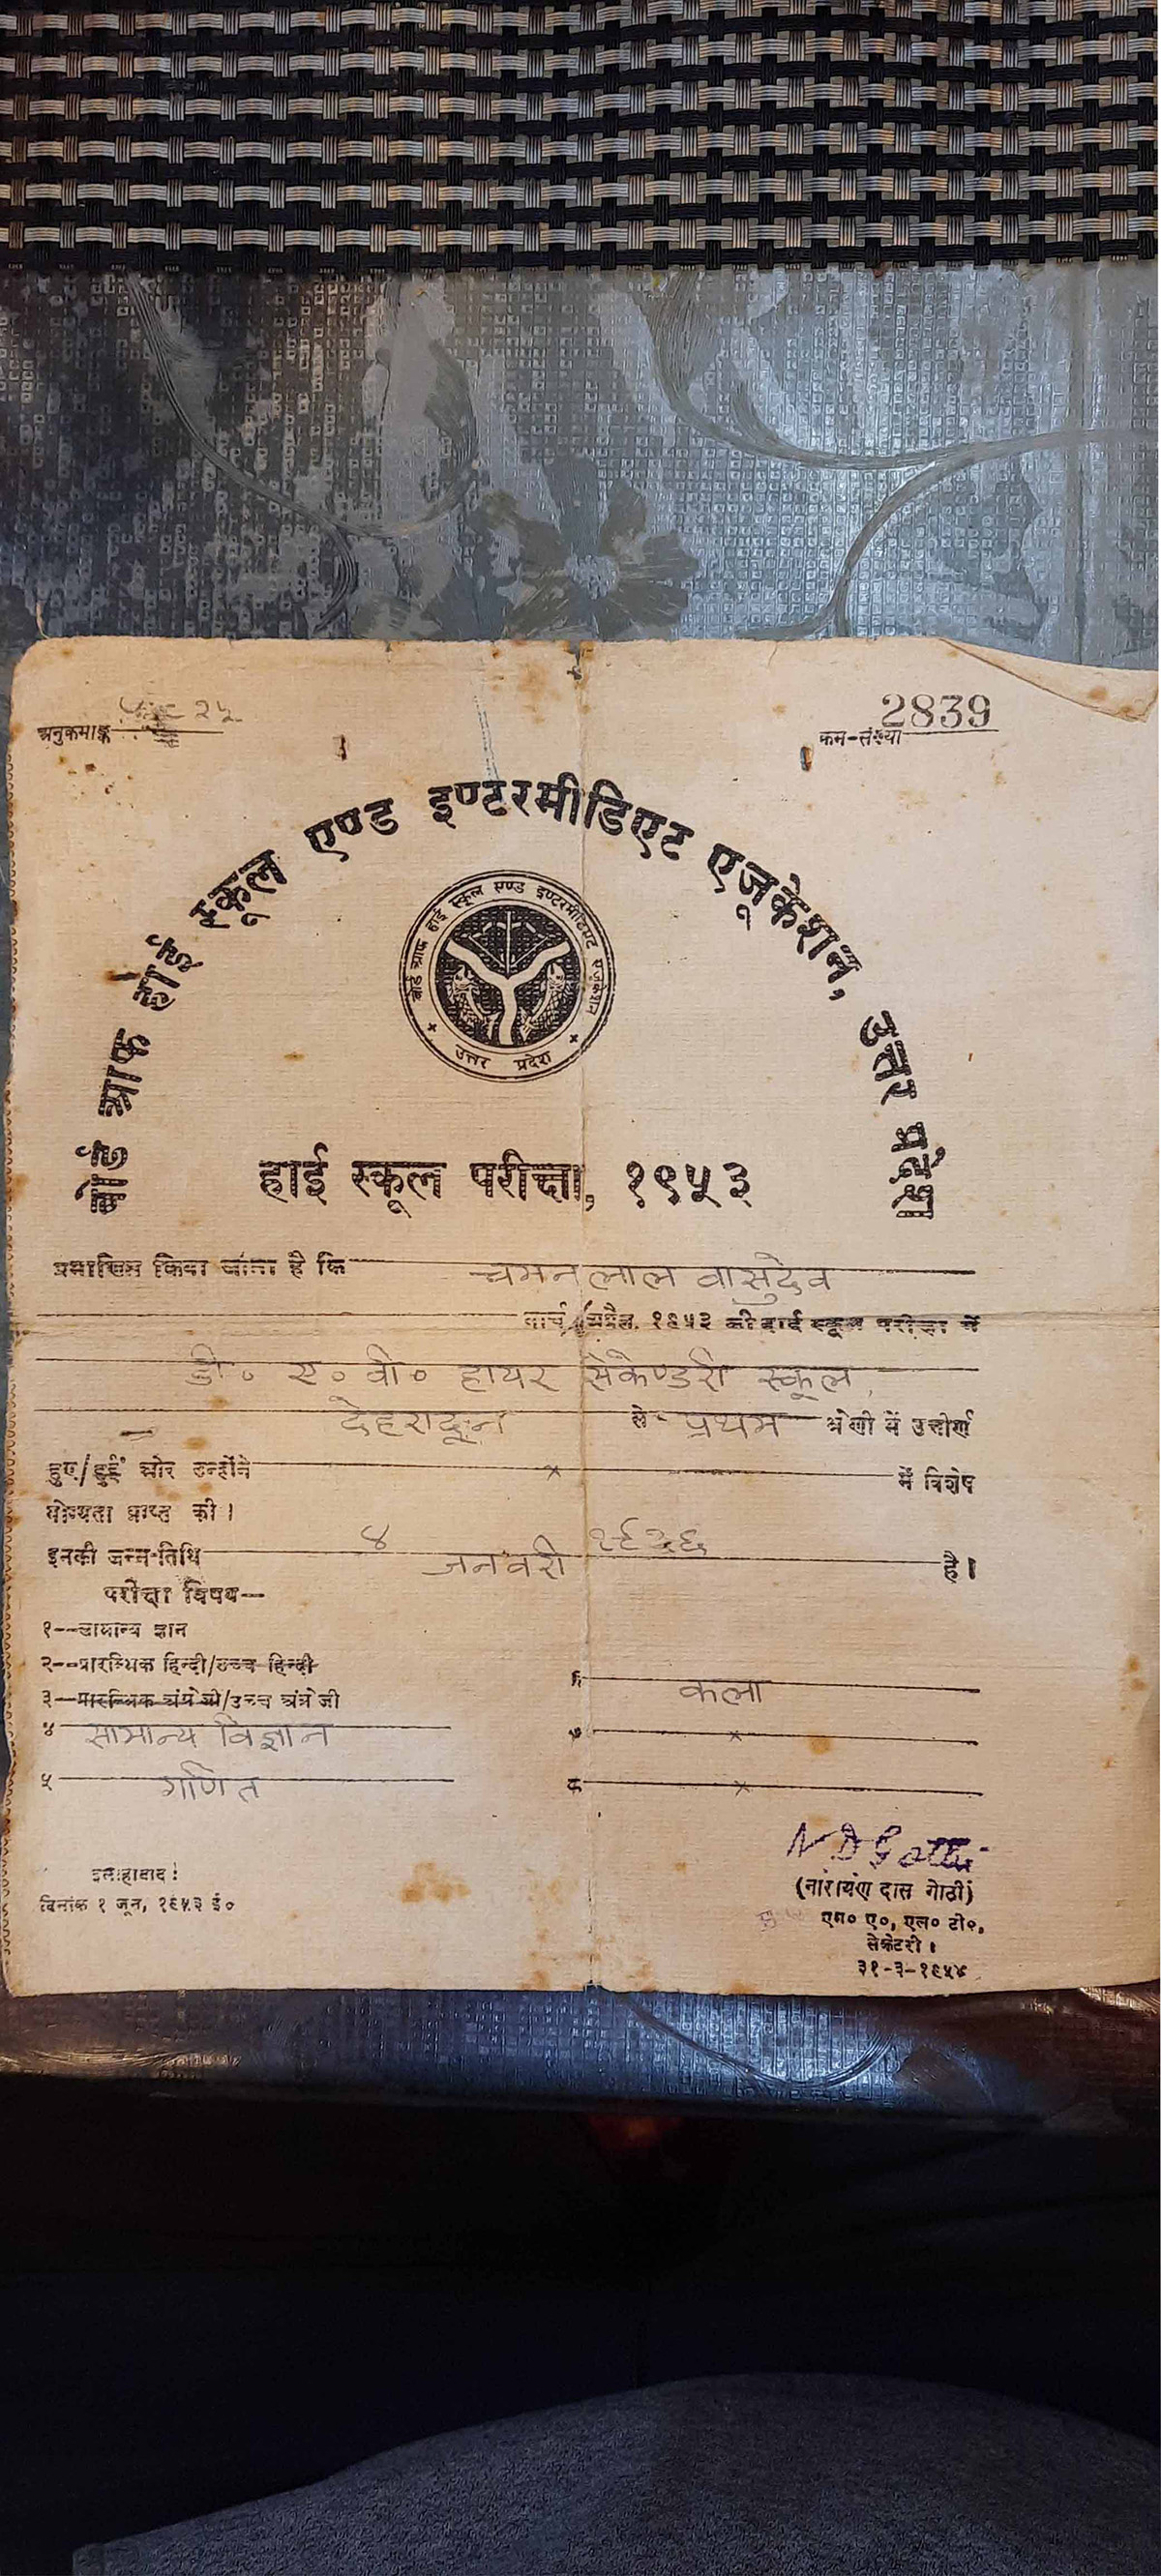 अनुक्रमाङ्क
2839
क्रम-संख्या
बोर्ड आफ हाई स्कूल एण्ड इण्टरमीडिएट एजूकेशन, उत्तर प्रदेश
बोर्ड आफ हाई स्कूल एण्ड इण्टरमीडिएट एजूकेशन
उत्तर प्रदेश
हाई स्कूल परीक्षा, १९५३
प्रमाणित किया जाता है कि चमनलाल वासुदेव
मार्च/अप्रैल, १९५३ की हाई स्कूल परीक्षा में
डी० ए० वी० हायर सेकेण्डरी स्कूल,
देहरादून से प्रथम श्रेणी में उत्तीर्ण
हुए/हुईं और उन्होंने × में विशेष
योग्यता प्राप्त की।
इनकी जन्म-तिथि ४ जनवरी १९३६ है।
परीक्षा विषय—
१--सामान्य ज्ञान
२--प्रारम्भिक हिन्दी/उच्च हिन्दी
३—प्रारम्भिक अंग्रेजी/उच्च अंग्रेजी
४ सामान्य विज्ञान
५ गणित
६ कला
७ ×
८ ×
इलाहाबाद:
दिनांक १ जून, १९५३ ई०
(नारायण दास गोठी)
एम० ए०, एल० टी०,
सेक्रेटरी।
३१-३-१९५४